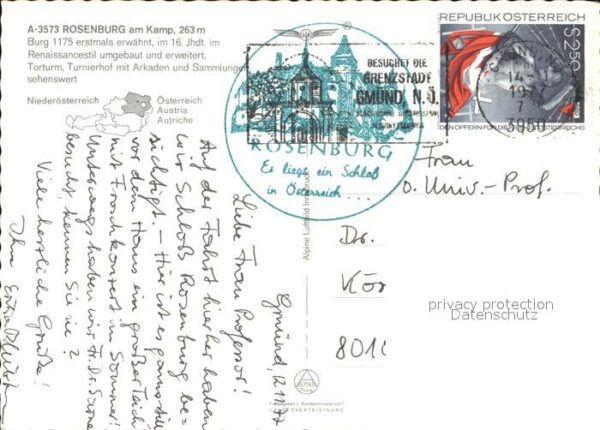 A-3573 ROSENBURG am Kamp, 263 m
Burg 1175 erstmals erwähnt, im 16. Jhdt. im
Renaissancestil umgebaut und erweitert.
Torturm, Turnierhof mit Arkaden und Sammlung
sehenswert
Niederösterreich
Österreich
Austria
Autriche
BESUCHET DIE
GRENZSTADT
GMÜND, N.Ö.
ROSENBURG
Es liegt ein Schloß
in Österreich ...
REPUBLIK ÖSTERREICH
S 2.50
1977
3950
DEN OPFERN FÜR DIE ÖSTERREICHS
Alpine Luftbild Innsbruck
Gmünd,
Liebe Frau Professor!
Auf der Fahrt hierher haben
wir Schloß Rosenburg be-
sichtigt. – Hier ist es ganz still
vor dem Haus ein großer Teich
mit Froschkonzert im Sommer!
Unterwegs haben wir Fr. Dr.
besucht, kennen Sie sie?
Viele herzliche Grüße!
Ihre
Frau
o. Univ.-Prof.
Dr.
Kör
8010
privacy protection
Datenschutz
LANDESVERTEIDIGUNG